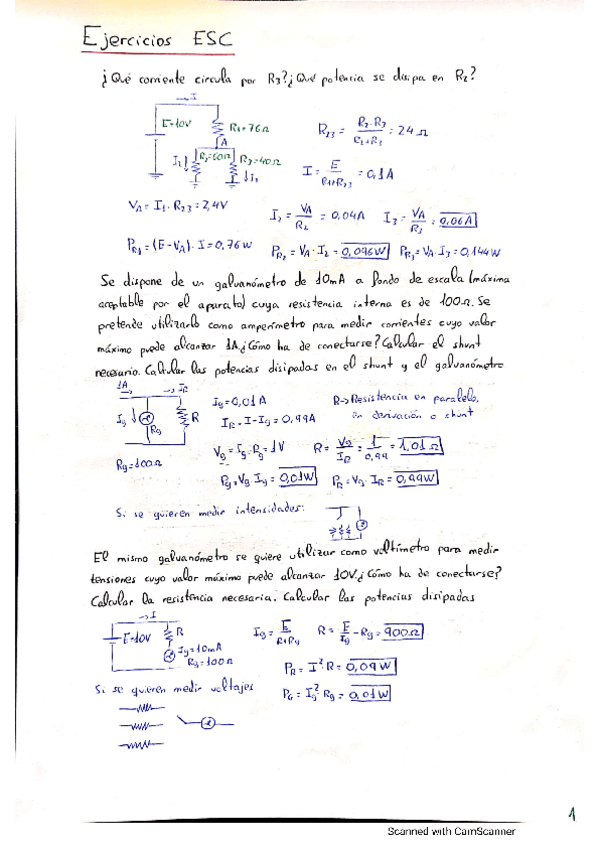 Ejercicios ESC
¿Qué corriente circula por R3? ¿Qué potencia se disipa en R2?
I
E=10V
R1=76Ω
A
I2
R2=60Ω
R3=40Ω
I3
R23 = R2·R3 / R2+R3 = 24Ω
I = E / R1+R23 = 0,1A
VA = I1·R23 = 2,4V
I2 = VA / R2 = 0,04A
I3 = VA / R3 = 0,06A
PR1 = (E-VA)·I = 0,76W
PR2 = VA·I2 = 0,096W
PR3 = VA·I3 = 0,144W
Se dispone de un galvanómetro de 10mA a fondo de escala (máxima
aceptable por el aparato) cuya resistencia interna es de 100Ω. Se
pretende utilizarlo como amperímetro para medir corrientes cuyo valor
máximo puede alcanzar 1A ¿Cómo ha de conectarse? Calcular el shunt
necesario. Calcular las potencias disipadas en el shunt y el galvanómetro
1A
IR
Ig
Rg
R
Rg=100Ω
Ig=0,01A
IR = I-Ig = 0,99A
R→Resistencia en paralelo,
en derivación o shunt
Vg = Ig·Rg = 1V
R = Vg / IR = 1 / 0,99 = 1,01Ω
Pg = Vg·Ig = 0,01W
PR = Vg·IR = 0,99W
Si se quieren medir intensidades:
El mismo galvanómetro se quiere utilizar como voltímetro para medir
tensiones cuyo valor máximo puede alcanzar 10V ¿Cómo ha de conectarse?
Calcular la resistencia necesaria. Calcular las potencias disipadas
I
E=10V
R
Ig=10mA
Rg=100Ω
Ig = E / R+Rg
R = E / Ig - Rg = 900Ω
PR = I²·R = 0,09W
PG = Ig²·Rg = 0,01W
Si se quieren medir voltajes
1
Scanned with CamScanner